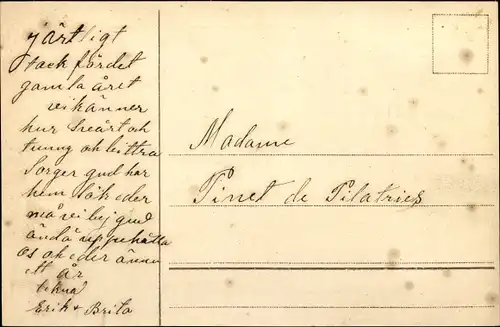 järtligt
tack fördet
gamla året
vi känner
hur Sveårt oh
tunng oh bittra
Sorger gud har
hem sök eder
må vi bej gud
ändå uppehålla
os oh eder ännu
ett år
Erik + Brita
Madame
Pinet de Pilatries